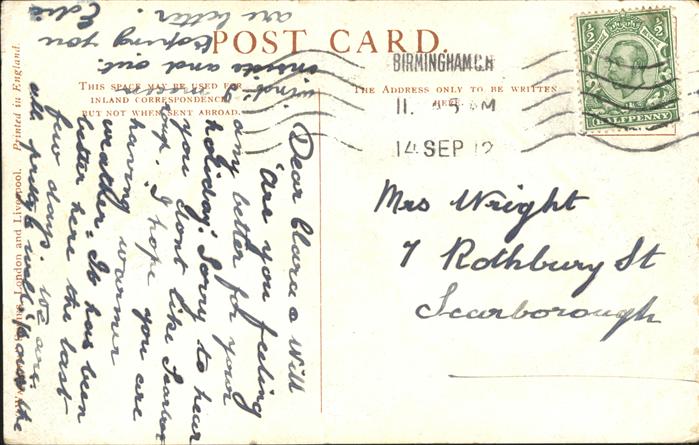 POST CARD.
THIS SPACE MAY BE USED FOR
INLAND CORRESPONDENCE
BUT NOT WHEN SENT ABROAD.
THE ADDRESS ONLY TO BE WRITTEN
HERE.
BIRMINGHAM
11. 5 AM
14 SEP 12
½ ½
HALFPENNY
Mrs Wright
7 Rothbury St
Scarborough
Dear Clara & Will
Are you feeling
any better for your
holiday. Sorry to hear
you dont like Scarbor
I hope you are
having warmer
weather. It has been
better here the last
few days. We are
all pretty well
the
wind
inside and out.
Hoping you
are better. Edie
London and Liverpool. Printed in England.